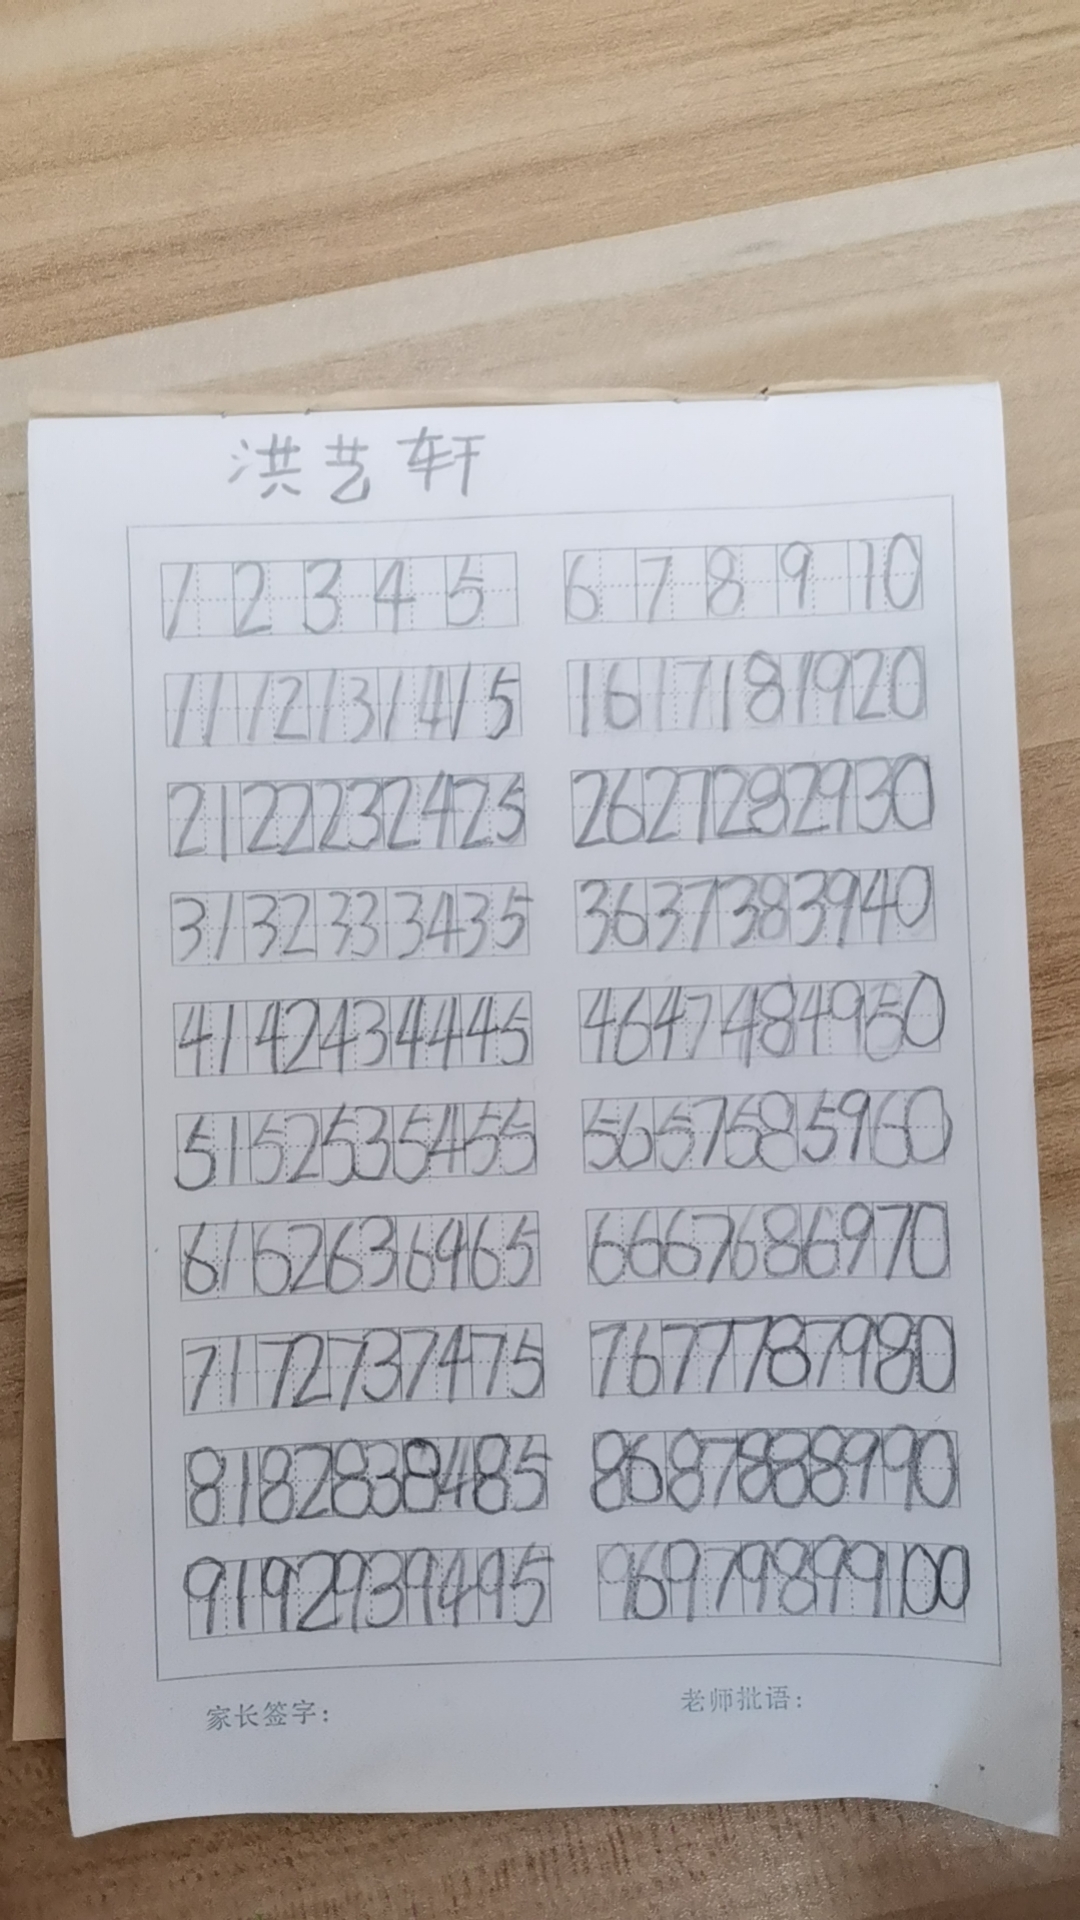 洪艺轩
1 2 3 4 5 6 7 8 9 10
11 12 13 14 15 16 17 18 19 20
21 22 23 24 25 26 27 28 29 30
31 32 33 34 35 36 37 38 39 40
41 42 43 44 45 46 47 48 49 50
51 52 53 54 55 56 57 58 59 60
61 62 63 64 65 66 67 68 69 70
71 72 73 74 75 76 77 78 79 80
81 82 83 84 85 86 87 88 89 90
91 92 93 94 95 96 97 98 99 100
家长签字： 老师批语：